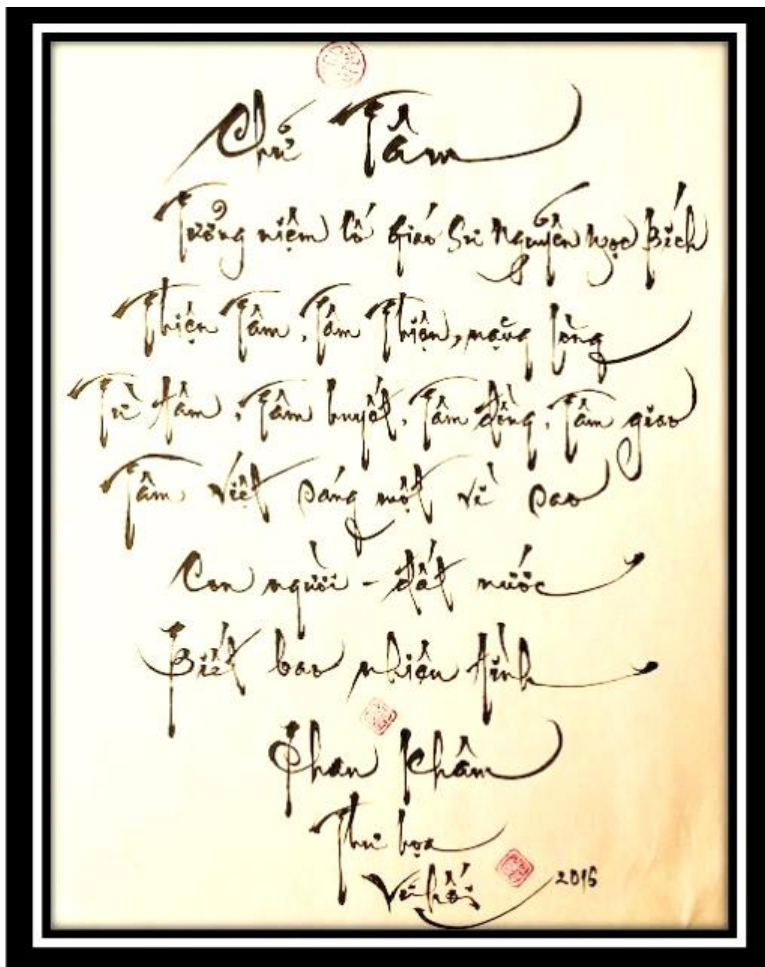 Chữ Tâm
Tưởng niệm cố Giáo Sư Nguyễn Ngọc Bích
Thiện Tâm, Tâm Thiện, nặng lòng
Từ tâm, Tâm huyết, Tâm đồng, Tâm giao
Tâm Việt sáng một vì sao
Con người - đất nước
Biết bao nhiêu tình
Phan Khâm
Thư họa
Vũ Hối 2016